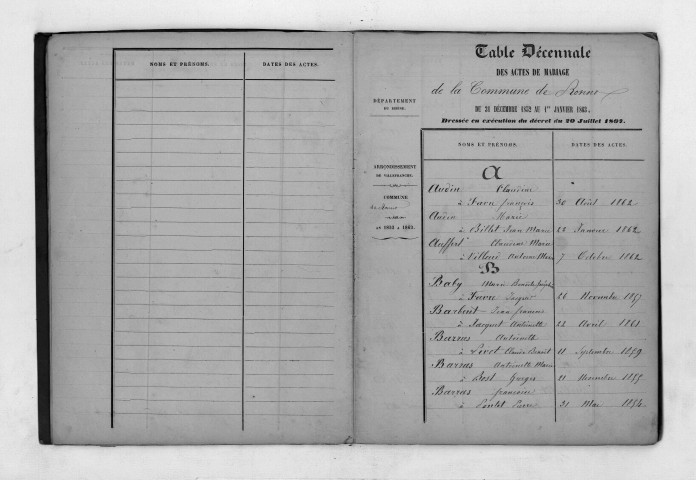 NOMS ET PRÉNOMS.
DATES DES ACTES.
Table Décennale
DES ACTES DE MARIAGE
de la Commune de
DU 31 DÉCEMBRE 1852 AU 1er JANVIER 1863,
Dressée en exécution du décret du 20 Juillet 1807.
DÉPARTEMENT
DU RHÔNE.
ARRONDISSEMENT
DE VILLEFRANCHE.
COMMUNE
DE 1853 A 1863.
NOMS ET PRÉNOMS.
DATES DES ACTES.
A
Audin Claudine
à Favre françois 30 Août 1862
Audin Marie
à Billet Jean Marie 23 Janvier 1862
Auffert Claudine Marie
à Villand Antoine Marie 7 Octobre 1862
B
Baby Marie Benoite
à Favre Jacques 26 Novembre 1857
Jean francois
à Jacquet Antoinette 23 Avril 1861
Barras Antoinette
à Livet Claude Benoit 11 Septembre 1859
Barras Antoinette Marie
à Bost 21 Novembre 1855
Barras francoise
à Pontet Pierre 31 Mai 1854